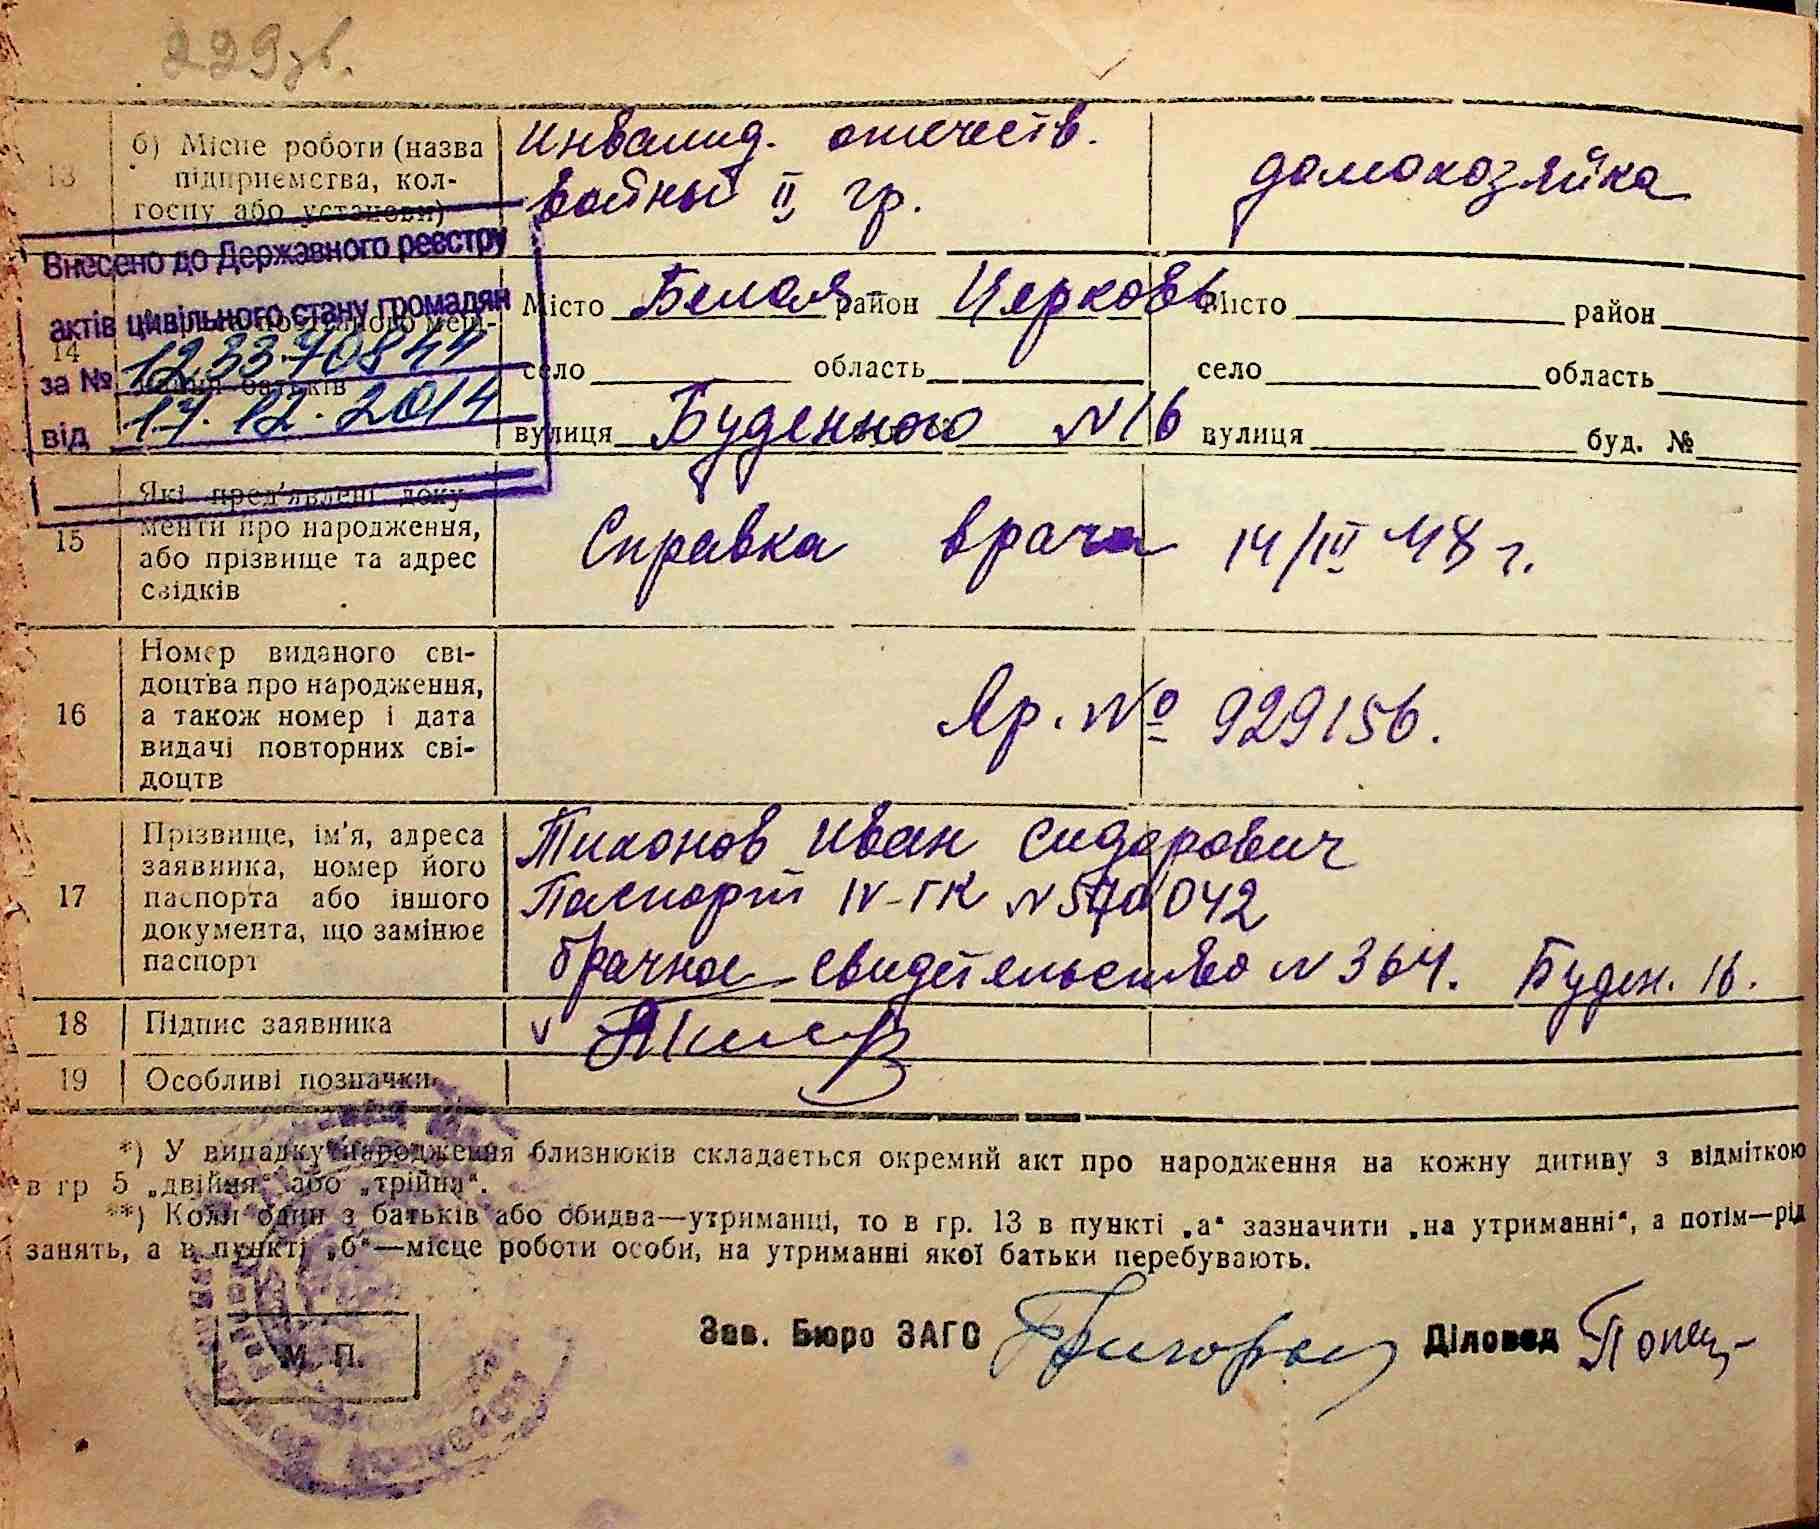 229
13 б) Місце роботи (назва підприємства, колгоспу або установи)
Инвалид. отечеств. войны II гр.
домохозяйка
Внесено до Державного реєстру
актів цивільного стану громадян
за № 1233770844
від 17.12.2014
14
батьків
Місто Белая район Церковь
село область
вулиця Буденного N 16
Місто район
село область
вулиця буд. №
15 Які пред'явлені доку-
менти про народження,
або прізвище та адрес
свідків
Справка врача 14/III 48 г.
16 Номер виданого сві-
доцтва про народження,
а також номер і дата
видачі повторних сві-
доцтв
Яр. № 929156.
17 Прізвище, ім'я, адреса
заявника, номер його
паспорта або іншого
документа, що замінює
паспорт
Тихонов Иван Сидорович
Паспорт IV-ГК N 570042
Брачное свидетельство N 364. Буден. 16.
18 Підпис заявника
19 Особливі позначки
*) У випадку народження близнюків складається окремий акт про народження на кожну дитину з відміткою
в гр 5 „двійня“ або „трійня“.
**) Коли один з батьків або обидва—утриманці, то в гр. 13 в пункті „а“ зазначити „на утриманні“, а потім—рід
занять, а в пункті „б“—місце роботи особи, на утриманні якої батьки перебувають.
М. П.
Зав. Бюро ЗАГС
Діловод